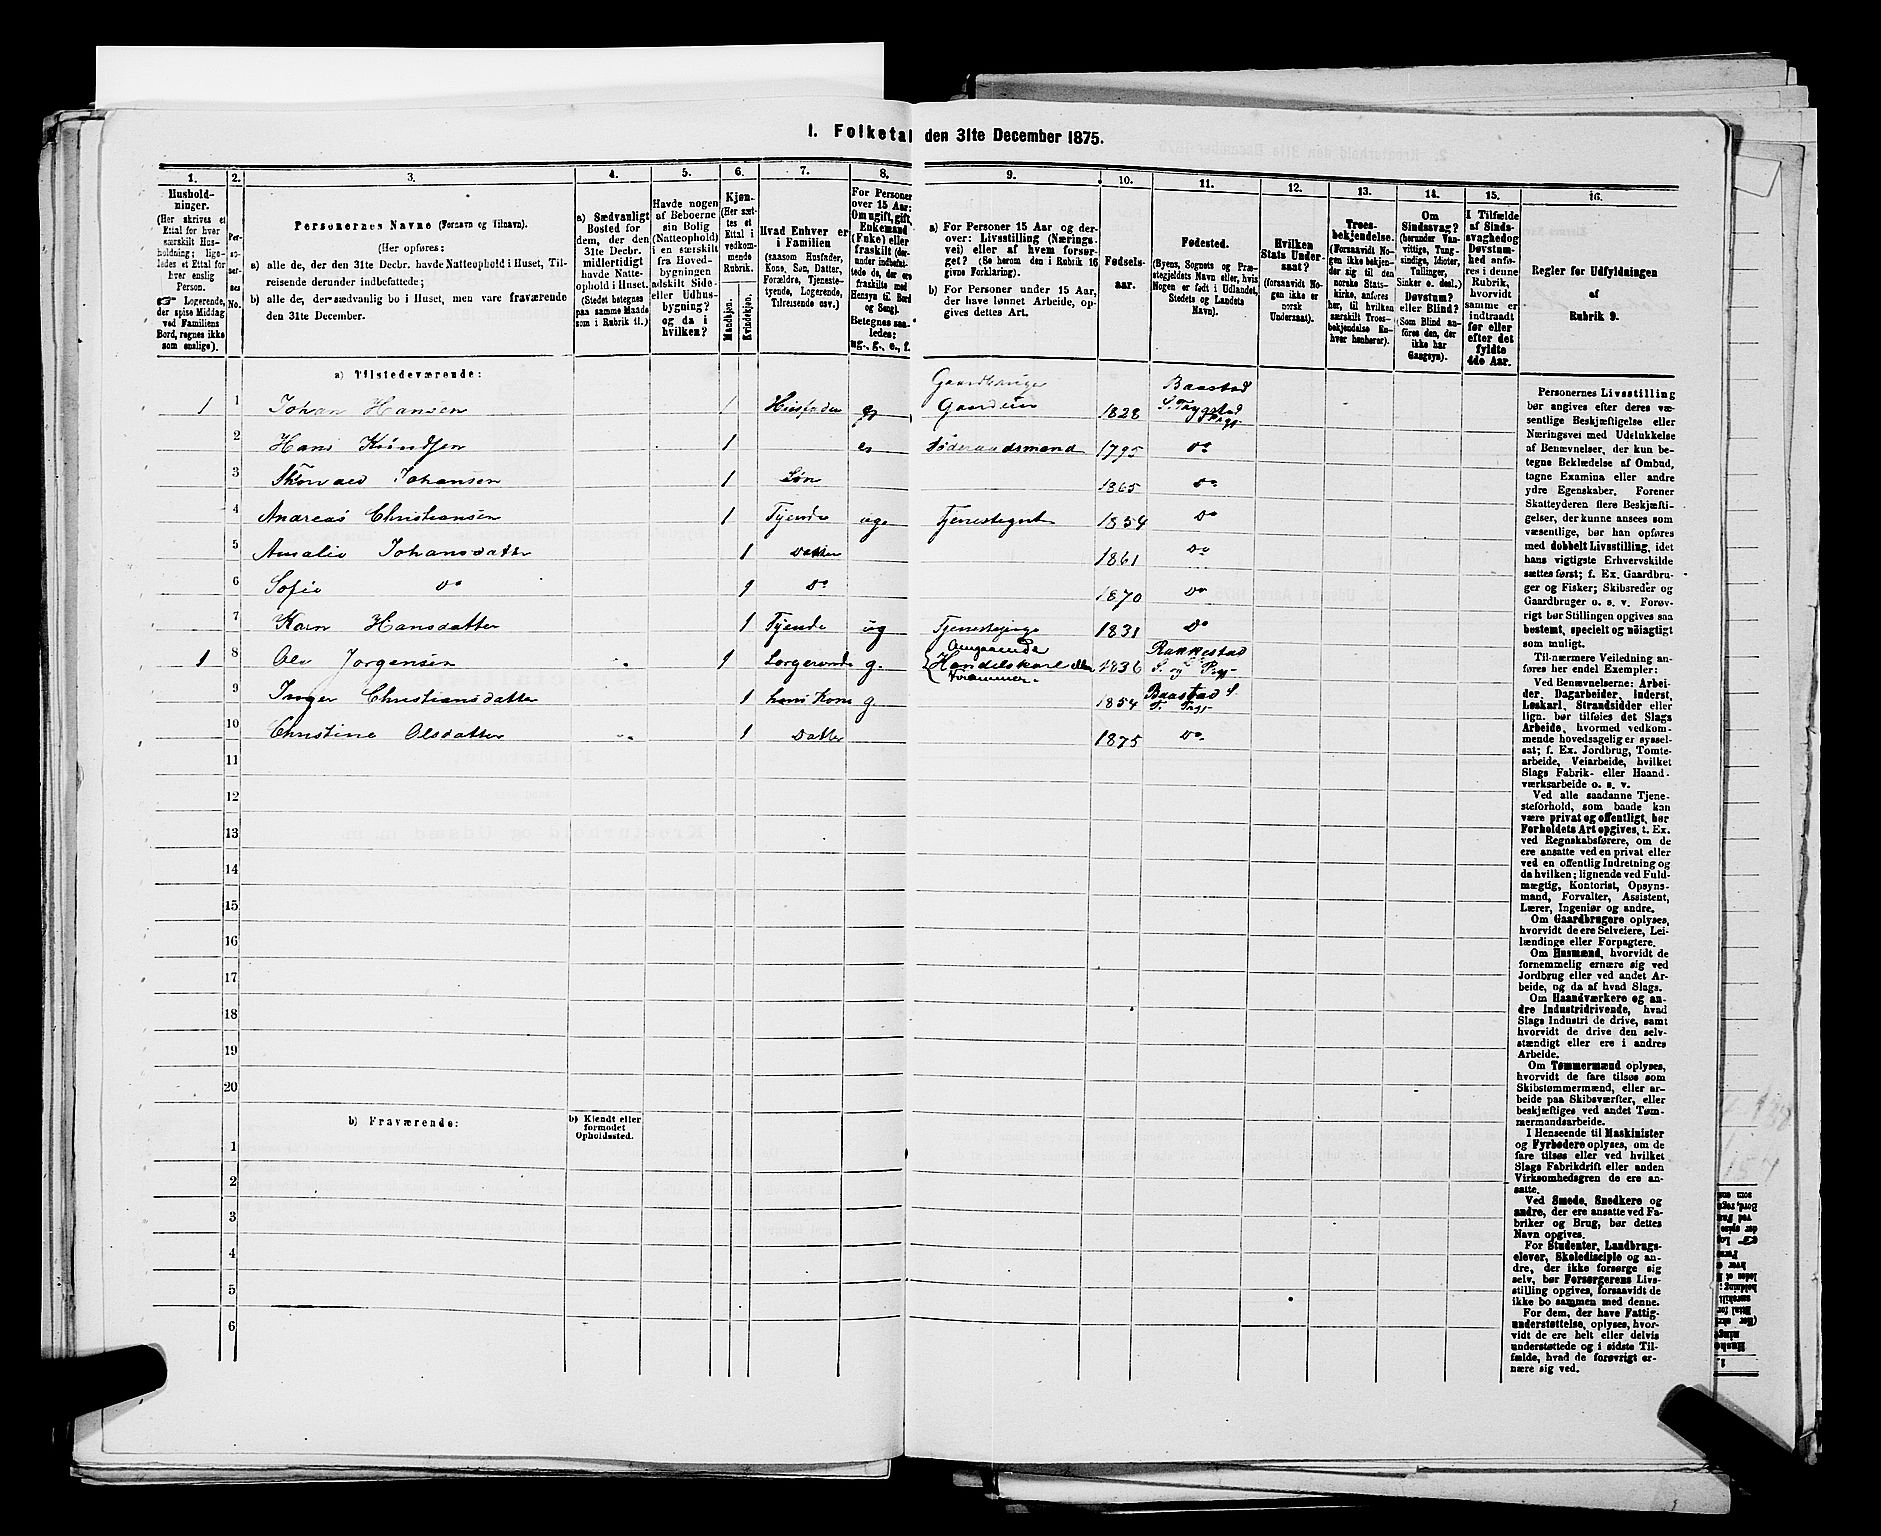 I. Folketal den 31te December 1875.
1. 2. 3. 4. 5. 6. 7. 8. 9. 10. 11. 12. 13. 14. 15. 16.
Hushold-
ninger.
(Her skrives et
Ettal for hver
særskilt Hus-
holdning; lige-
ledes et Ettal for
hver enslig
Person.
☞ Logerende,
der spise Middag
ved Familiens
Bord, regnes ikke
som enslige).
Per-
so-
ner-
nes
No.
Personernes Navne (Fornavn og Tilnavn).
(Her opføres:
a) alle de, der den 31te Decbr. havde Natteophold i Huset, Til-
reisende derunder indbefattede;
b) alle de, der sædvanlig bo i Huset, men vare fraværende
den 31te December.
a) Sædvanligt
Bosted for
dem, der den
31te Decbr.
midlertidigt
havde Natte-
ophold i Huset.
(Stedet betegnes
paa samme Maade
som i Rubrik 11.)
Havde nogen
af Beboerne
sin Bolig
(Natteophold)
i en særskilt
fra Hoved-
bygningen
adskilt Side-
eller Udhus-
bygning?
og da i
hvilken?
Kjøn.
(Her sæt-
tes et
Ettal i
vedkom-
mende
Rubrik.
Mandkjøn.
Kvindekjøn.
Hvad Enhver er
i Familien
(saasom Husfader,
Kone, Søn, Datter,
Forældre, Tjeneste-
tyende, Logerende,
Tilreisende osv.)
For Personer
over 15 Aar:
Om ugift, gift,
Enkemand
(Enke) eller
fraskilt (der-
under indbefat-
tede de, der ere
fraskilte med
Hensyn til Bord
og Seng).
Betegnes saa-
ledes:
ug., g., e., f.
a) For Personer 15 Aar og der-
over: Livsstilling (Nærings-
vei) eller af hvem forsør-
get? (Se herom den i Rubrik 16
givne Forklaring).
b) For Personer under 15 Aar,
der have lønnet Arbeide, op-
gives dettes Art.
Fødsels-
aar.
Fødested.
(Byens, Sognets og Præ-
stegjeldets Navn eller, hvis
Nogen er født i Udlandet,
Stedets og Landets
Navn).
Hvilken
Stats Under-
saat?
(forsaavidt No-
gen ikke er
norsk
Undersaat).
Troes-
bekjendelse.
(Forsaavidt No-
gen ikke bekjen-
der sig til den
norske Stats-
kirke, anføres
her, til hvilken
særskilt Troes-
bekjendelse En-
hver henhører).
Om
Sindssvag?
(herunder Van-
vittige, Tung-
sindige, Idioter,
Tullinger,
Sinker o. desl.)
Døvstum?
eller Blind?
(Som Blind an-
føres den, der
ikke har
Gangsyn).
I Tilfælde
af Sinds-
svaghed og
Døvstum-
hed anfø-
res i denne
Rubrik,
hvorvidt
samme er
indtraadt
før eller
efter det
fyldte
4de Aar.
Regler for Udfyldningen
af
Rubrik 9.
a) Tilstedeværende:
1 1 Johan Hansen 1 Husfader g Gaardbruger Gaardeier 1828 Baastad S. Trygstad Prgj
2 Hans Knudsen 1 e Føderaadsmand 1795 do
3 Thorvald Johansen 1 Søn 1865 do
4 Andreas Christiansen 1 Tyende ug Tjenestegut 1854 do
5 Amalie Johansdatter 1 Datter 1861 do
6 Sofie do 1 do 1870 do
7 Karn Hansdatter 1 Tyende ug Tjenestepige 1831 do
1 8 Ole Jørgensen 1 Logerende g. Omgaaende Handelskarl eller Kræmmer. 1836 Rakkestad S. og Prgj
9 Inger Christiansdatter 1 hans Kone g 1854 Baastad S. T. Prgj
10 Christine Olsdatter 1 Datter 1875 do
11
12
13
14
15
16
17
18
19
20
b) Fraværende:
b) Kjendt eller
formodet
Opholdssted.
1
2
3
4
5
6
Personernes Livsstilling
bør angives efter deres væ-
sentlige Beskjæftigelse eller
Næringsvei med Udelukkelse
af Benævnelser, der kun be-
tegne Beklædelse af Ombud,
tagne Examina eller andre
ydre Egenskaber. Forener
Skatteyderen flere Beskjæfti-
gelser, der kunne ansees som
væsentlige, bør han opføres
med dobbelt Livsstilling, idet
hans vigtigste Erhvervskilde
sættes først; f. Ex. Gaardbru-
ger og Fisker; Skibsreder og
Gaardbruger o. s. v. Forøv-
rigt bør Stillingen opgives saa
bestemt, specielt og nøiagtigt
som muligt.
Til nærmere Veiledning an-
føres her endel Exempler:
Ved Benævnelserne: Arbei-
der, Dagarbeider, Inderst,
Løskarl, Strandsidder eller
lign. bør tilføies det Slags
Arbeide, hvormed vedkom-
mende hovedsagelig er syssel-
sat; f. Ex. Jordbrug, Tomte-
arbeide, Veiarbeide, hvilket
Slags Fabrik- eller Haand-
værksarbeide o. s. v.
Ved alle saadanne Tjene-
steforhold, som baade kan
være privat og offentligt, bør
Forholdets Art opgives, t. Ex.
ved Regnskabsførere, om de
ere ansatte ved en privat eller
ved en offentlig Indretning og
da hvilken; lignende ved Fuld-
mægtig, Kontorist, Opsyns-
mand, Forvalter, Assistent,
Lærer, Ingeniør og andre.
Om Gaardbrugere oplyses,
hvorvidt de ere Selveiere, Lei-
lændinge eller Forpagtere.
Om Husmænd, hvorvidt de
fornemmelig ernære sig ved
Jordbrug eller ved andet Ar-
beide, og da af hvad Slags.
Om Haandværkere og an-
dre Industridrivende, hvad
Slags Industri de drive, samt
hvorvidt de drive den selv-
stændigt eller ere i andres
Arbeide.
Om Tømmermænd oplyses,
hvorvidt de fare tilsøs som
Skibstømmermænd, eller ar-
beide paa Skibsværfter, eller
beskjæftiges ved andet Tøm-
mermandsarbeide.
I Henseende til Maskinister
og Fyrbødere oplyses, om de
fare tilsøs eller ved hvilket
Slags Fabrikdrift eller anden
Virksomhedsgren de ere an-
satte.
Ved Smede, Snedkere og
andre, der ere ansatte ved Fa-
briker og Brug, bør dettes
Navn opgives.
For Studenter, Landbrugs-
elever, Skoledisciple og an-
dre, der ikke forsørge sig
selv, bør Forsørgerens Livs-
stilling opgives, forsaavidt de
ikke bo sammen med denne.
For dem, der have Fattig-
understøttelse, oplyses, hvor-
vidt de ere helt eller delvis
understøttede og i sidste Til-
fælde, hvad de forøvrigt er-
nære sig ved.